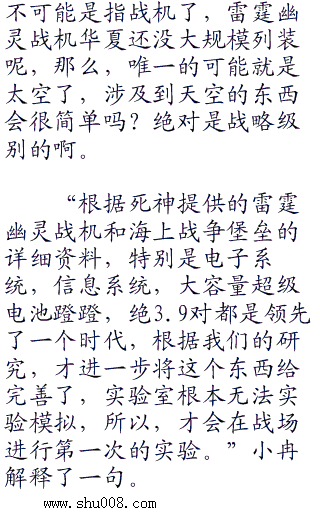 不可能是指战机了，雷霆幽
灵战机华夏还没大规模列装
呢，那么，唯一的可能就是
太空了，涉及到天空的东西
会很简单吗？绝对是战略级
别的啊。
“根据死神提供的雷霆
幽灵战机和海上战争堡垒的
详细资料，特别是电子系
统，信息系统，大容量超级
电池蹬蹬，绝3.9对都是领先
了一个时代，根据我们的研
究，才进一步将这个东西给
完善了，实验室根本无法实
验模拟，所以，才会在战场
进行第一次的实验。”小冉
解释了一句。
www.shu008.com